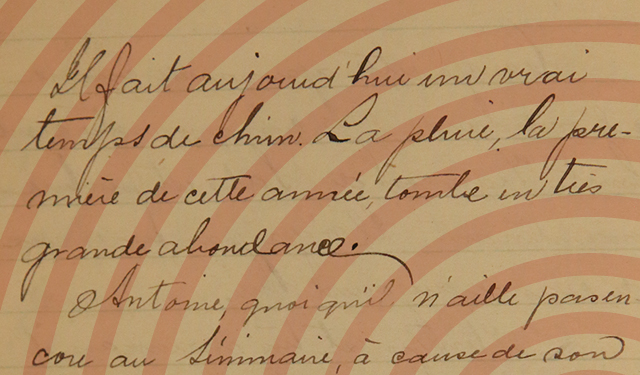 Il fait aujourd'hui un vrai
temps de chien. La pluie, la pre-
mière de cette année, tombe en très
grande abondance.
Antoine, quoiqu'il n'aille pas en
core au Séminaire, à cause de son